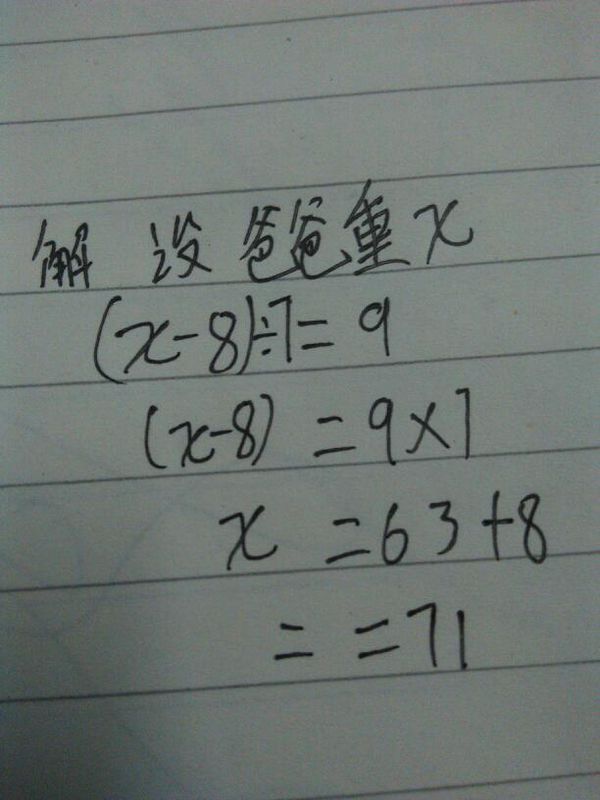 解 设爸爸重x
(x-8)÷7=9
(x-8)=9×7
x=63+8
= =71